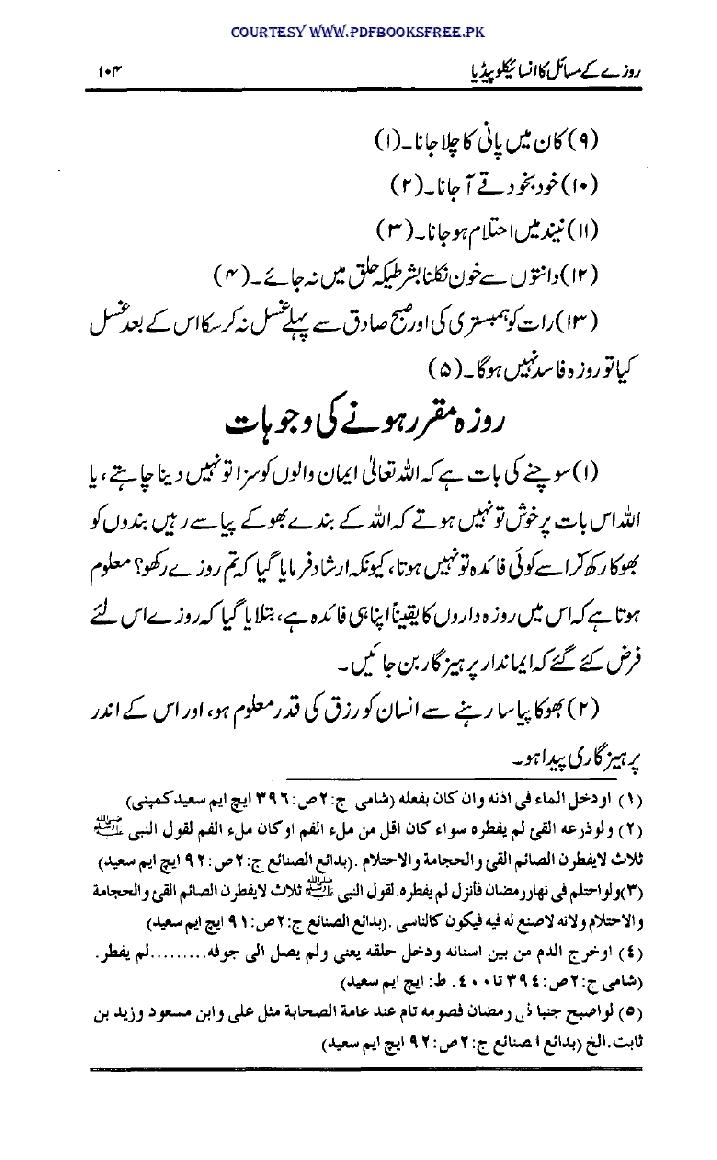 COURTESY WWW.PDFBOOKSFREE.PK
روزے کے مسائل کا انسائیکلوپیڈیا ۱۰۴
(۹) کان میں پانی کا چلا جانا۔(۱)
(۱۰) خود بخود قے آ جانا۔(۲)
(۱۱) نیند میں احتلام ہو جانا۔(۳)
(۱۲) دانتوں سے خون نکلنا بشرطیکہ حلق میں نہ جائے۔(۴)
(۱۳) رات کو ہمبستری کی اور صبح صادق سے پہلے غسل نہ کر سکا اس کے بعد غسل
کیا تو روزہ فاسد نہیں ہوگا۔(۵)
روزہ مقرر ہونے کی وجوہات
(۱) سوچنے کی بات ہے کہ اللہ تعالیٰ ایمان والوں کو سزا تو نہیں دینا چاہتے، یا
اللہ اس بات پر خوش تو نہیں ہوتے کہ اللہ کے بندے بھوکے پیاسے رہیں بندوں کو
بھوکا رکھ کر اسے کوئی فائدہ تو نہیں ہوتا، کیونکہ ارشاد فرمایا گیا کہ تم روزے رکھو؟ معلوم
ہوتا ہے کہ اس میں روزہ داروں کا یقیناً اپنا ہی فائدہ ہے، بتلایا گیا کہ روزے اس لئے
فرض کئے گئے کہ ایماندار پرہیزگار بن جائیں۔
(۲) بھوکا پیاسا رہنے سے انسان کو رزق کی قدر معلوم ہو، اور اس کے اندر
پرہیزگاری پیدا ہو۔
(۱) اودخل الماء فی اذنه وان کان بفعله (شامی ج:۲ص:۳۹٦ ایچ ایم سعید کمپنی)
(۲) ولو ذرعه القئ لم یفطره سواء کان اقل من ملء الفم او کان ملء الفم لقول النبی ﷺ
ثلاث لایفطرن الصائم القئ والحجامة والاحتلام .(بدائع الصنائع ج:۲ص:۹۲ ایچ ایم سعید)
(۳) ولواحتلم فی نهار رمضان فأنزل لم یفطره لقول النبی ﷺ ثلاث لایفطرن الصائم القئ والحجامة
والاحتلام ولانه لاصنع له فیه فیکون کالناسی .(بدائع الصنائع ج:۲ص:۹۱ ایچ ایم سعید)
(٤) اوخرج الدم من بین اسنانه ودخل حلقه یعنی ولم یصل الی جوفه.........لم یفطر.
(شامی ج:۲ص:۳۹٤ تا ٤٠٠. ط: ایچ ایم سعید)
(۵) لواصبح جنبا فی رمضان فصومه تام عند عامة الصحابة مثل علی وابن مسعود وزید بن
ثابت.الخ (بدائع الصنائع ج:۲ص:۹۲ ایچ ایم سعید)